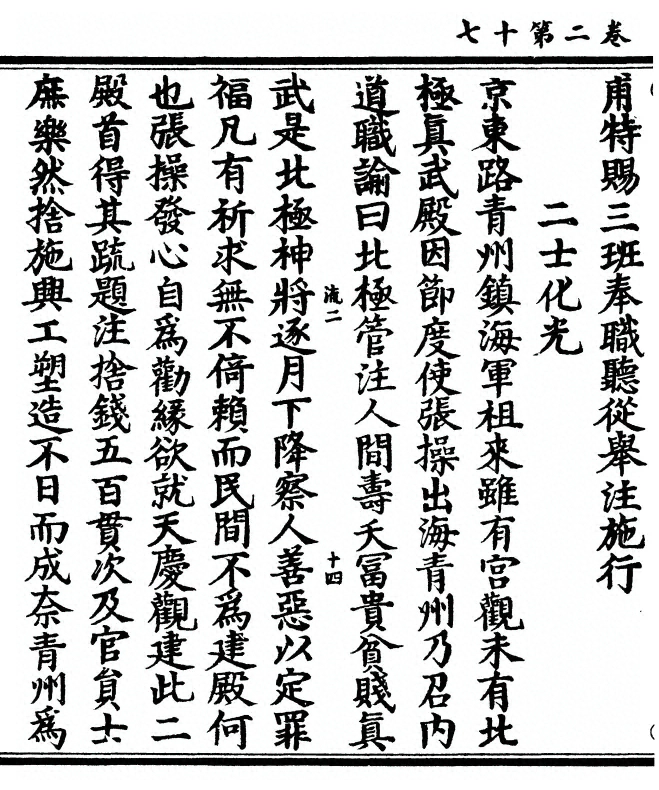 七十第二卷
甫特賜三班奉職聽從舉注施行
二士化光
京東路青州鎮海軍祖來雖有宮觀未有北
極眞武殿因節度使張操出海青州乃召内
道職諭曰北極管注人間壽夭冨貴貧賤眞
流二
十四
武是北極神將逐月下降察人善惡以定罪
福凡有祈求無不倚賴而民間不爲建殿何
也張操發心自爲勸緣欲就天慶觀建此二
殿首得其䟽題注捨錢五百貫次及官貟士
庶樂然捨施興工塑造不日而成柰青州爲